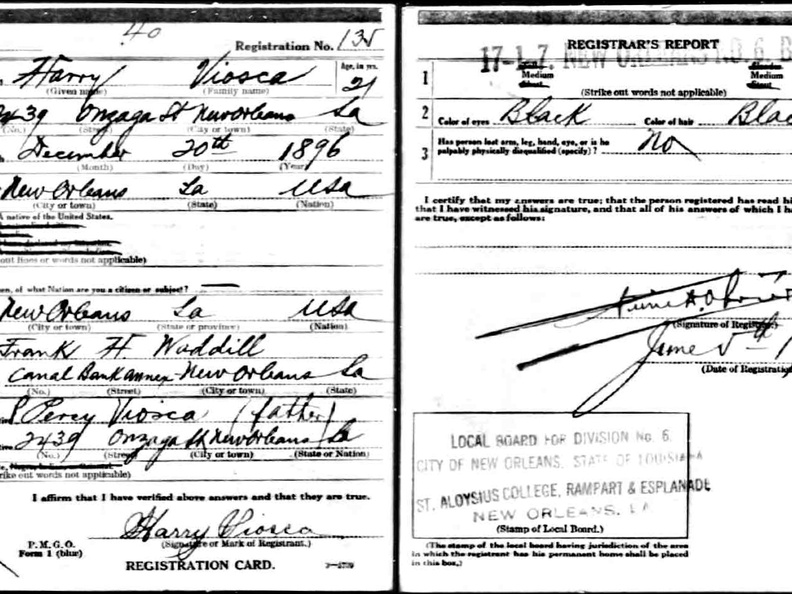 40
Registration No. 135
Harry Viosca
Age, in yrs.
21
(Given name) (Family name)
2439 Onzaga St New Orleans La
(No.) (Street) (City or town) (State)
December 20th 1896
(Month) (Day) (Year)
New Orleans La USA
(City or town) (State) (Nation)
A native of the United States.
out lines or words not applicable)
en, of what Nation are you a citizen or subject?
New Orleans La USA
(City or town) (State or province) (Nation)
Frank H Waddill
Canal Bank annex New Orleans La
(No.) (Street) (City or town) (State)
Percy Viosca (father)
2439 Onzaga St New Orleans La
(No.) (Street) (City or town) (State or Nation)
rike out words not applicable)
I affirm that I have verified above answers and that they are true.
Harry Viosca
P.M.G.O.
Form 1 (blue)
(Signature or Mark of Registrant.)
REGISTRATION CARD.
REGISTRAR'S REPORT
17-1-7. NEW ORLEANS NO. 6. B
1 Medium Medium
(Strike out words not applicable)
2 Color of eyes Black Color of hair Blac
3 Has person lost arm, leg, hand, eye, or is he
palpably physically disqualified (specify)? No
I certify that my answers are true; that the person registered has read hi
that I have witnessed his signature, and that all of his answers of which I ha
are true, except as follows:
(Signature of Registrar)
June 5th 1
(Date of Registratio
LOCAL BOARD FOR DIVISION No. 6.
CITY OF NEW ORLEANS, STATE OF LOUISIANA
ST. ALOYSIUS COLLEGE, RAMPART & ESPLANADE
NEW ORLEANS, LA
(Stamp of Local Board.)
(The stamp of the local board having jurisdiction of the area
in which the registrant has his permanent home shall be placed
in this box.)